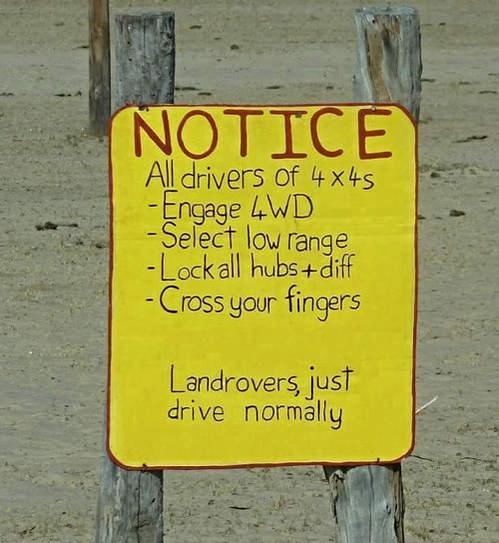 NOTICE
All drivers of 4x4s
-Engage 4WD
-Select low range
-Lock all hubs+diff
-Cross your fingers
Landrovers, just
drive normally